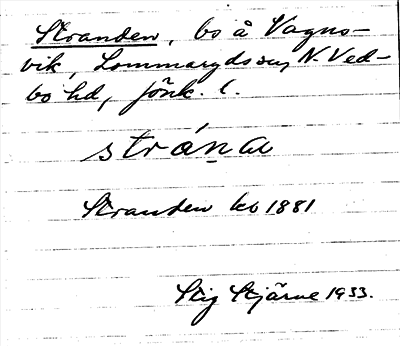 Stranden, bo å Vagns-
vik, Lommaryds sn, N. Ved-
bo hd, Jönk. l.
strána
Stranden kb 1881
Stig Stjärne 1933.